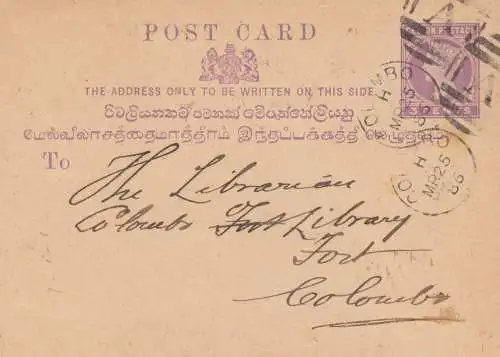 POST CARD
THE ADDRESS ONLY TO BE WRITTEN ON THIS SIDE.
மேல்விலாசத்தைமாத்திரம் இந்தப்பக்கத்தி லெழுதவும்
To
The Librarian
Colombo Fort Library
Fort
Colombo
COLOMBO
H
MR 25
86
COLOMBO
H
MR 25
86